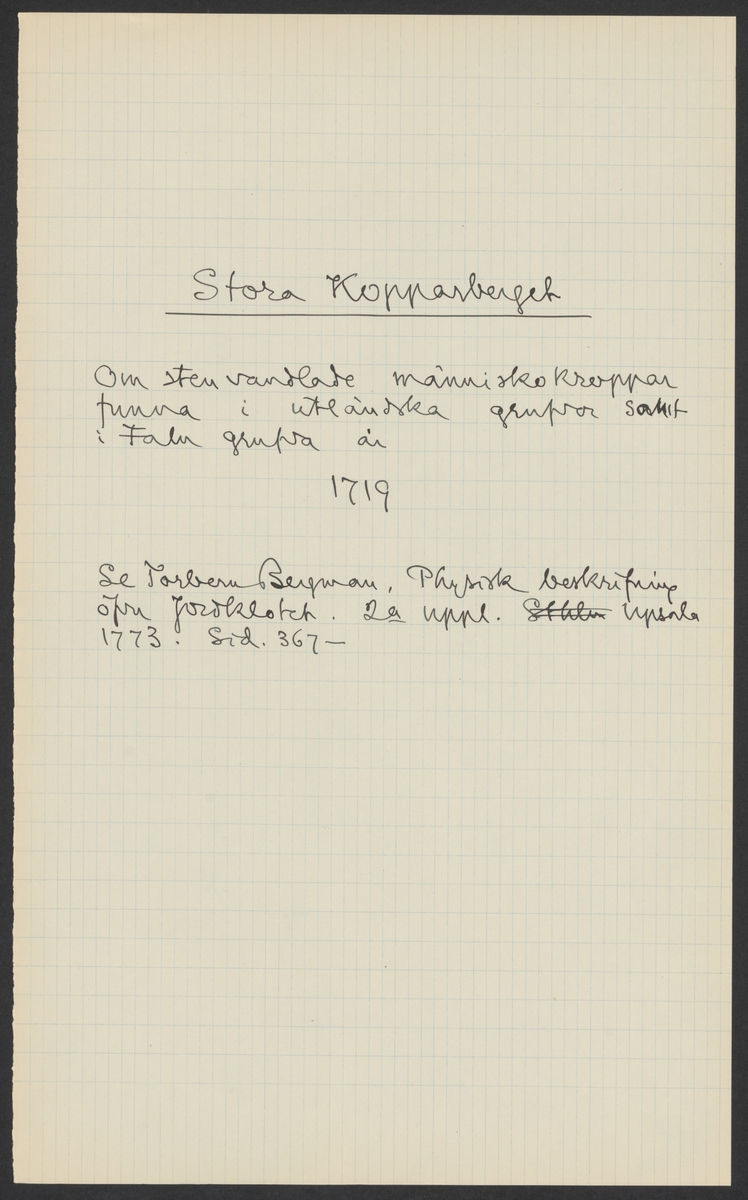 Stora Kopparberget
Om stenvandlade människokroppar
funna i utländska grufvor samt
i Falu grufva år
1719
Se Torbern Bergman, Physisk beskrifning
öfver Jordklotet. 2a uppl. Sthlm Upsala
1773. Sid. 367—